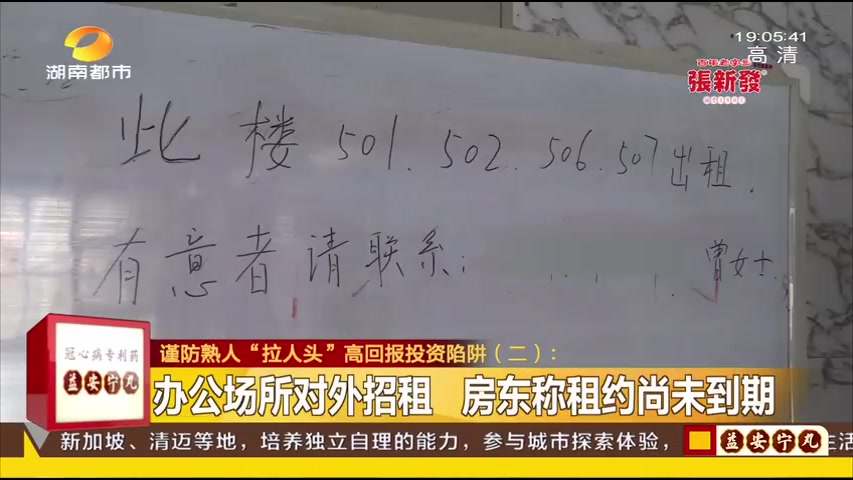 湖南都市
19:05:41
高清
百年老字号
張新發
此楼501.502.506.507出租.
有意者请联系:
曾女士
冠心病专利药
益安宁丸
谨防熟人“拉人头”高回报投资陷阱(二):
办公场所对外招租 房东称租约尚未到期
新加坡、清迈等地，培养独立自理的能力，参与城市探索体验，
益安宁丸
生活